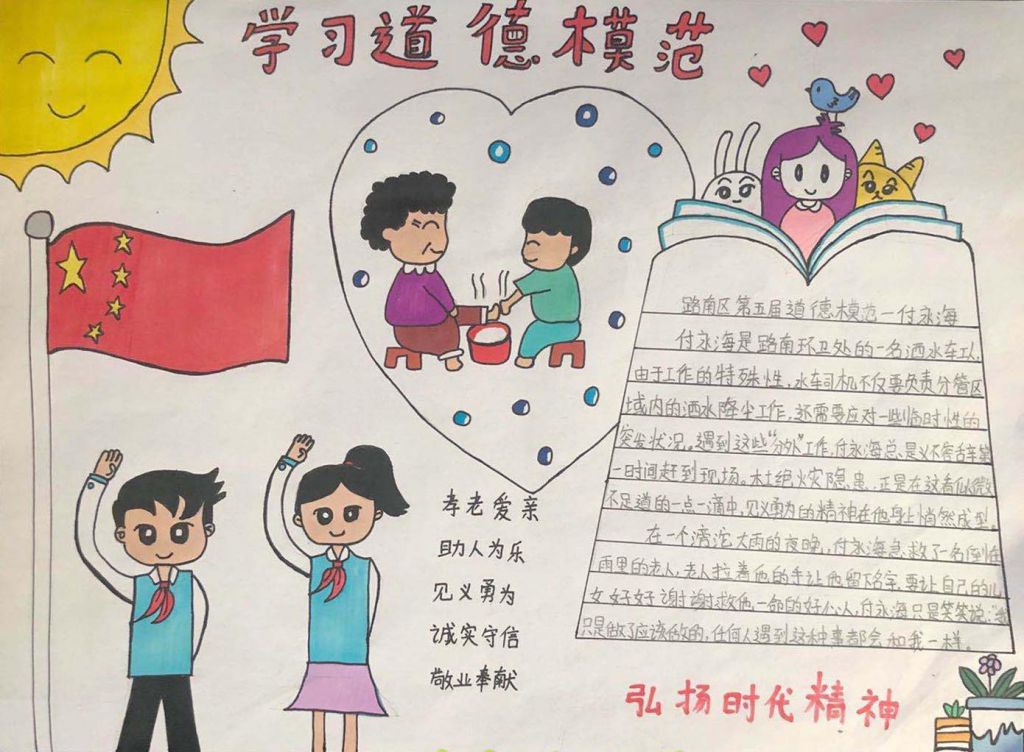 学习道德模范
孝老爱亲
助人为乐
见义勇为
诚实守信
敬业奉献
路南区第五届道德模范—付永海
付永海是路南环卫处的一名洒水车工,
由于工作的特殊性,水车司机不仅要负责分管区
域内的洒水降尘工作,还需要应对一些临时性的
突发状况。遇到这些“分外”工作,付永海总是义不容辞第
一时间赶到现场。杜绝火灾隐患。正是在这看似微
不足道的一点一滴中,见义勇为的精神在他身上悄然成型。
在一个滂沱大雨的夜晚,付永海急救了一名倒在
雨里的老人,老人拉着他的手让他留下名字,要让自己的儿
女好好谢谢救他一命的好心人,付永海只是笑笑说:“我
只是做了应该做的,任何人遇到这种事都会和我一样。
弘扬时代精神